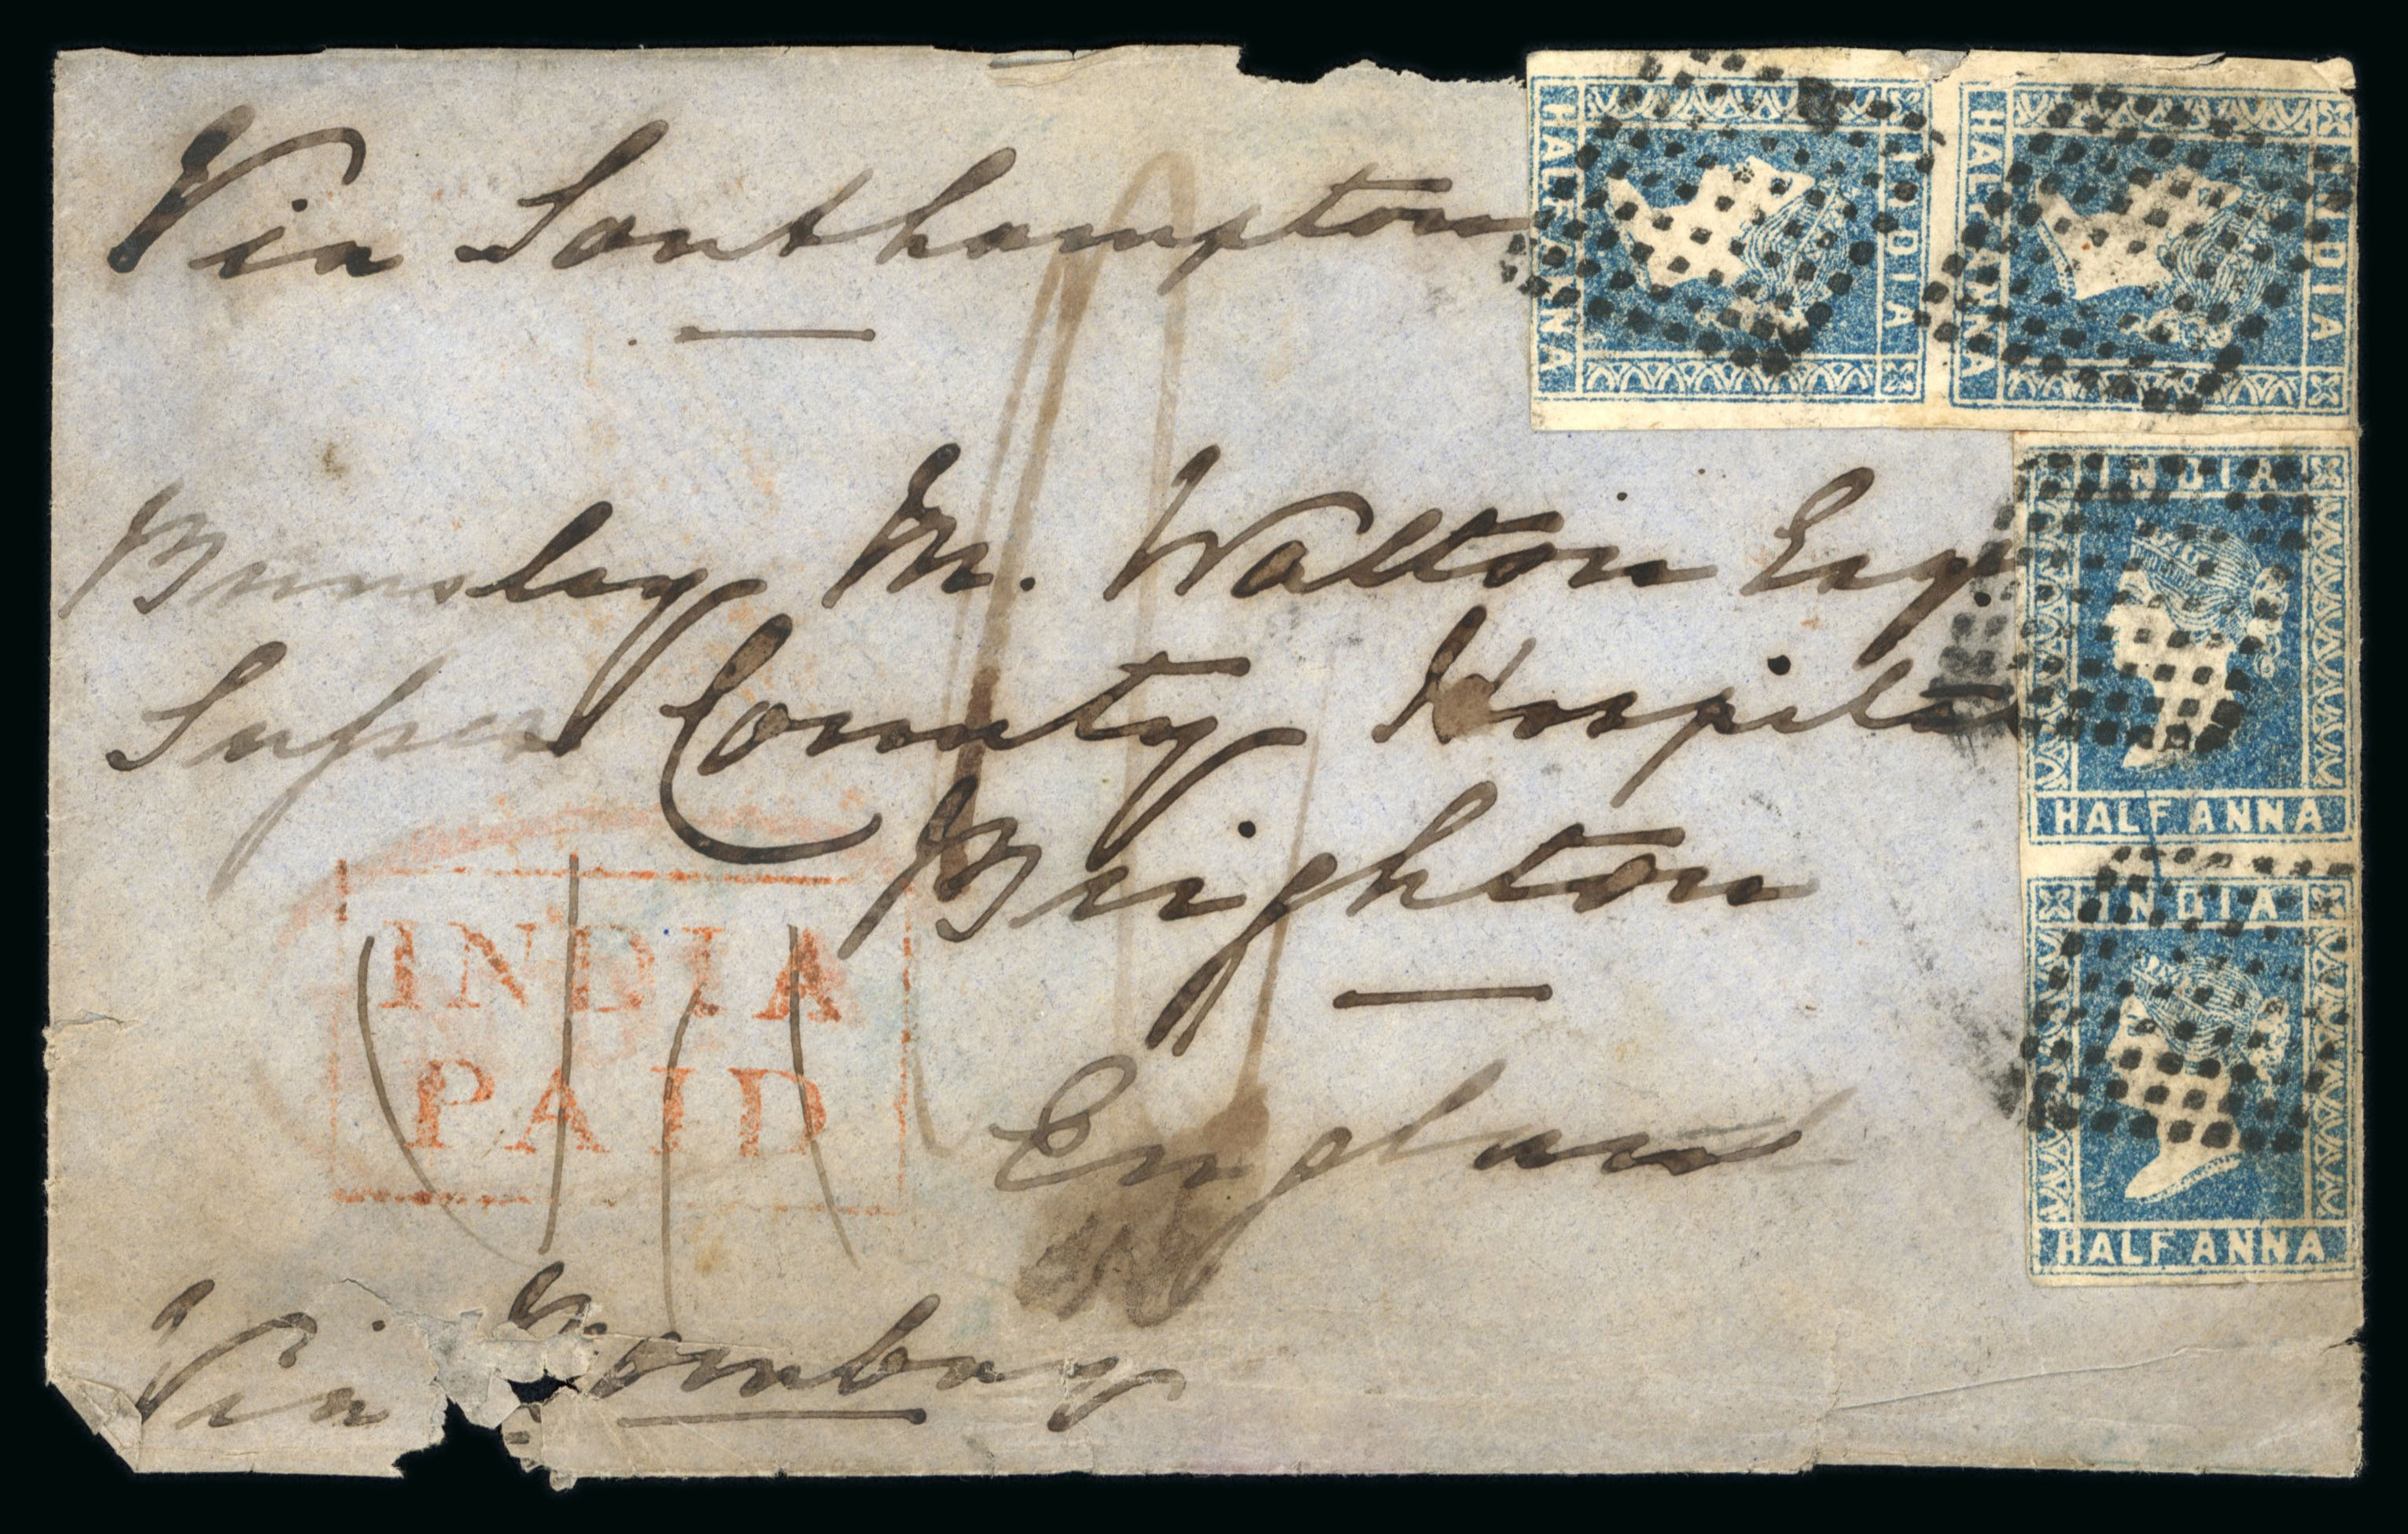 Via Southampton
HALF ANNA INDIA
HALF ANNA INDIA
M. Walton Esq.
County Hospital
Brighton
England
INDIA
PAID
Via Bombay
INDIA
HALF ANNA
INDIA
HALF ANNA